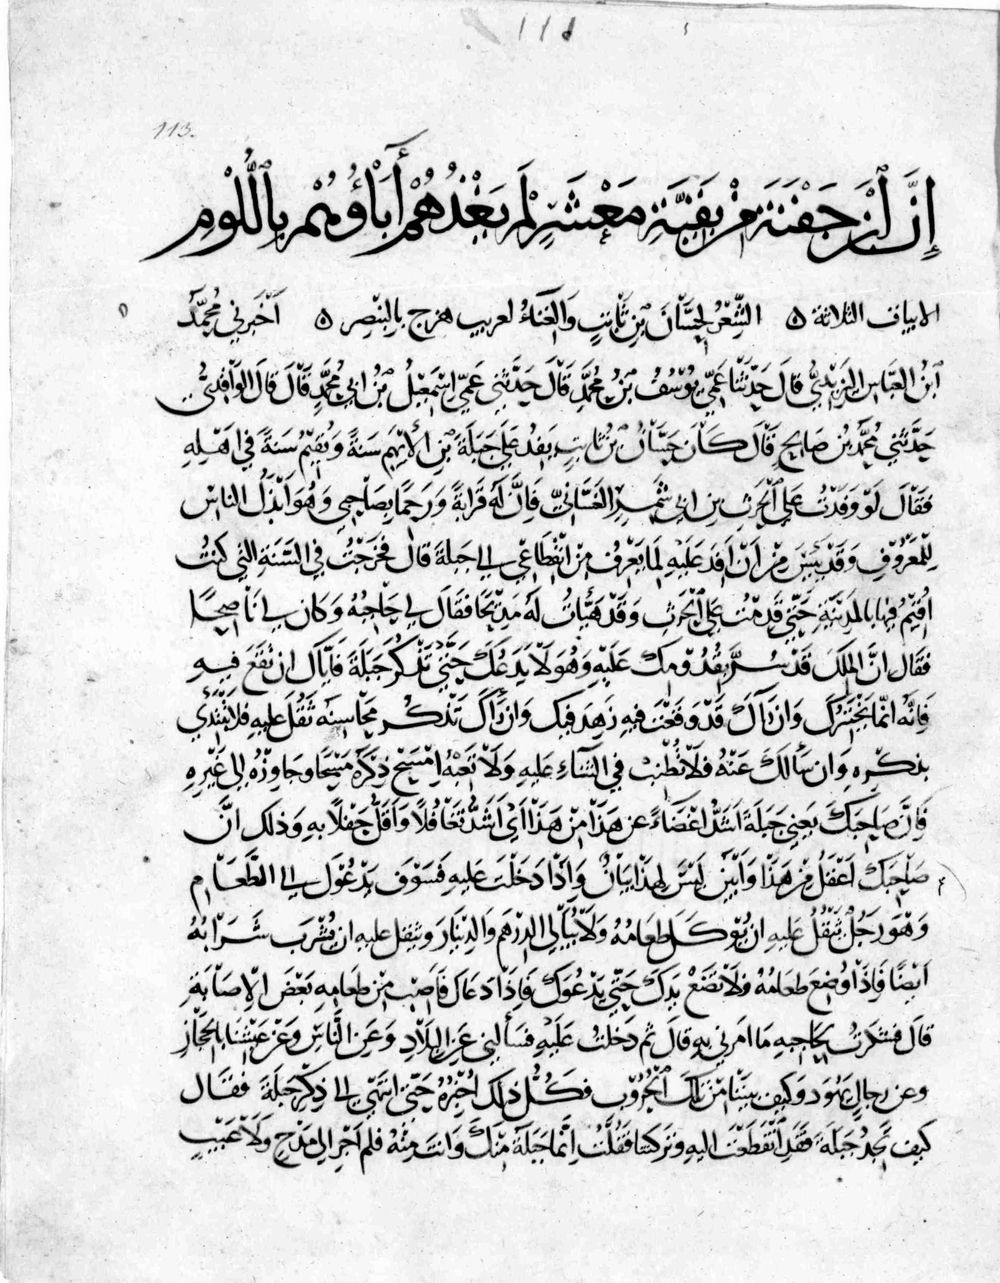 118
113.
إِنَّ ٱبْنَ جَفْنَةَ مِنْ بَقِيَّةِ مَعْشَرٍ لَمْ يَغْذُهُمْ أَبَاؤُهُمْ بِاللُّوْمِ
الابيات الثلاثة ٥ الشِّعْرُ لِحَسَّانَ بْنِ ثَابِتٍ وَالغِنَاءُ لعريب هزج بِالبِنْصِرِ ٥ أَخْبَرَنِي مُحَمَّدُ
ابْنُ العَبَّاسِ اليَزِيْدِيُّ قالَ حَدَّثَنَا عَمِّي يُوسُفُ بْنُ مُحَمَّدٍ قَالَ حَدَّثَنِي عَمِّي اِسْمَعِيْلُ بْنُ ابي مُحَمَّدٍ قَالَ قالَ الوَاقِدِيُّ
حَدَّثَنِي مُحَمَّدُ بْنُ صَالِحٍ قَالَ كَانَ حَسَّانُ بْنُ ثَابِتٍ يَفِدُ عَلَى جَبَلَةَ بْنِ الأَيْهَمِ سَنَةً وَيُقِيمُ سَنَةً فِي اَهْلِهِ
فَقَالَ لَوْ وَفَدْتُ عَلَى الحَرِثِ بنِ ابي شَمِرٍ الغَسَّانِيِّ فَإِنَّ لَهُ قَرَابَةً وَرَحِمًا بِصَاحِبِي وَهُوَ اَبْذَلُ الناسِ
لِلْمَعْرُوْفِ وَقَدْ يَئِسَ مِنْ اَنْ اَفِدَ عَلَيْهِ لِمَا يَعْرِفُ مِنْ انْقِطَاعِي الى جَبَلَةَ قالَ فَخَرَجْتُ فِي السَّنَةِ التي كنتُ
اُقِيْمُ فيها بالمَدِيْنَةِ حَتَّى قَدِمْتُ عَلَى الحَرِثِ وَقَدْ هَيَّأتُ لَهُ مَدِيْحًا فَقالَ لي حَاجِبُهُ وَكانَ لي نَاصِحًا
فقَال انَّ المَلِكَ قَدْ سُرَّ بِقُدُوْمِكَ عَلَيْهِ وَهُوَ لَا يَدَعُكَ حَتَّى تَذْكُرَ جَبَلَةَ فَايَّاكَ ان تَقَعَ فيهِ
فَانَّهُ انَّمَا يَخْتَبِرُكَ وَانْ رَآكَ قَدْ وَقَعْتَ فيهِ زَهِدَ فيكَ وَانْ رَآكَ تَذْكُر مَحَاسِنَهُ ثَقُلَ عليهِ فلا تَبْتَدِئ
بذكْرِهِ وَان سَأَلَكَ عَنْهُ فَلَا تُطْنِبْ في الثَّنَاءِ عَلَيْهِ وَلَا تَعِبْهُ امْسَحْ ذِكْرَهُ مَسْحًا وجَاوِزْهُ الى غَيْرِهِ
فَانَّ صَاحِبَكَ يعني جَبَلَةَ اَشَدُّ اغْضَاءً عن هَذَا مِنْ هَذَا أَي اَشَدُّ تَغَافُلًا وَاَقَلُّ حَفْلًا بِهِ وَذلك انَّ
صَاحِبَكَ اَعْقَلُ مِنْ هَذَا وَاَبْيَنُ لَيْسَ لِهَذَا بَيَانٌ وَاذَا دَخَلْتَ عليهِ فَسَوْفَ يَدْعُوْكَ الى الطَّعَامِ
وَهْوَ رَجُلٌ يَثْقُلُ عَليهِ ان يُوْكَلَ طَعَامُهُ وَلَا يُبَالي الدِّرْهَمَ والدِّيْنَارَ ويَثْقُل عليهِ ان يُشْرَبَ شَرَابُهُ
اَيْضًا فَاذَا وُضِعَ طعَامُهُ فلَا تَضَعْ يَدَكَ حَتَّى يَدْعُوَكَ فَاذَا دعَاكَ فَاَصِبْ مِنْ طَعَامِهِ بَعْضَ الاِصَابَةِ
قالَ فشَكَرْتُ لِحَاجِبِهِ مَا امَرَني بِهِ قالَ ثم دَخَلتُ عَلَيْهِ فَسَأَلَني عَنِ البِلَادِ وَعَنِ النَّاسِ وَعَنْ عَيْشِنَا بالحِجَازِ
وعن رِجالِ يَهُوْدَ وَكيف بَيْنَنَا مِنْ تِلْكَ الحُرُوْبِ فَكُلَّ ذلك اُخْبِرُهُ حَتَّى انْتَهَى الى ذِكْرِ جَبَلَةَ فقَال
كيف تَجِدُ جَبَلَةَ فَقَدِ انْقَطَعْتَ اليهِ وتَركتَنا فقُلْتُ انَّمَا جَبَلَةُ مِنْكَ وَانتَ مِنْهُ فلم اَجْرِ الى مَدْحٍ وَلَا عَيْبٍ